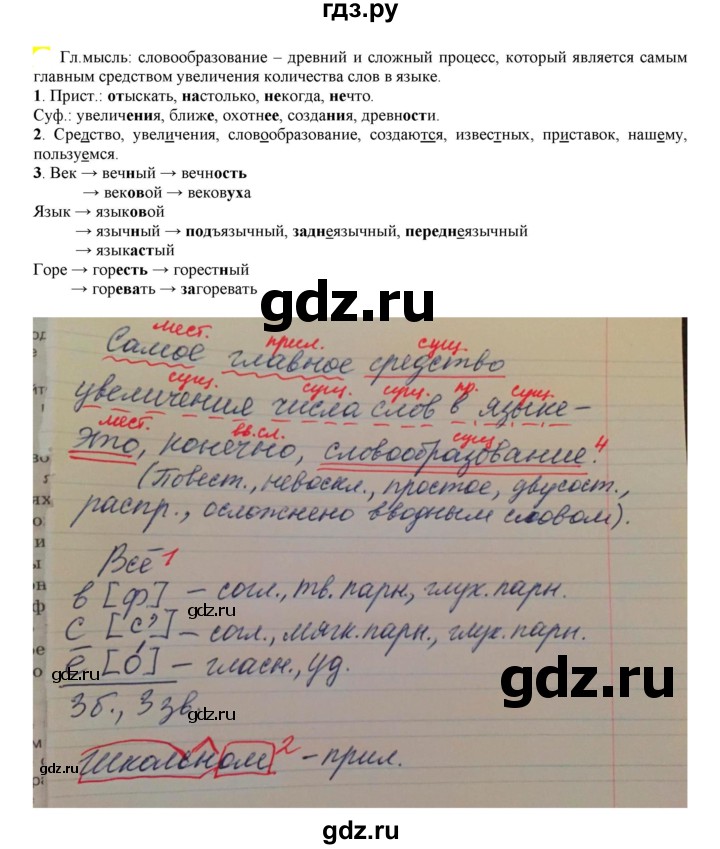 гдз.ру
Гл.мысль: словообразование – древний и сложный процесс, который является самым
главным средством увеличения количества слов в языке.
1. Прист.: отыскать, настолько, некогда, нечто.
Суф.: увеличения, ближе, охотнее, создания, древности.
2. Средство, увеличения, словообразование, создаются, известных, приставок, нашему,
пользуемся.
3. Век → вечный → вечность
→ вековой → вековуха
Язык → языковой
→ язычный → подъязычный, заднеязычный, переднеязычный
→ языкастый
Горе → горесть → горестный
→ горевать → загоревать
gdz.ru
мест. прил. сущ.
Самое главное средство
сущ. сущ. сущ. пр. сущ.
увеличения числа слов в языке –
мест. вв.сл. сущ
это, конечно, словообразование.4
(Повест., невоскл., простое, двусост.,
распр., осложнено вводным словом).
Всё 1
в [ф] – согл., тв. парн., глух. парн.
gdz.ru
с [с'] – согл., мягк. парн., глух. парн.
ё [о́] – гласн., уд.
gdz.ru
gdz.ru
3 б., 3 зв.
gdz.ru
школьном 2 – прил.
gdz.ru
gdz.ru